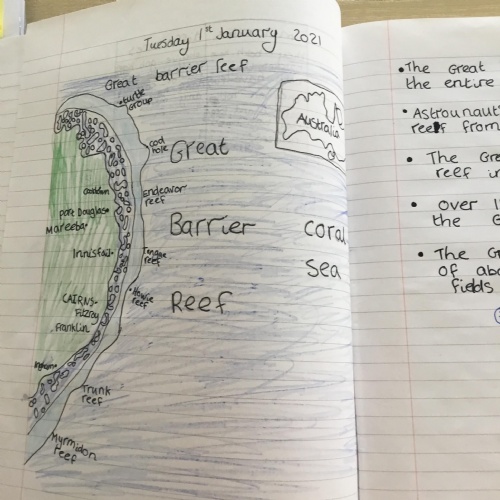 Tuesday 1st January 2021
Great barrier reef
turtle
group
Australia
cod
hole
Great
cooktown
Endeavor
reef
port Douglas
Mareeba
Barrier
coral
Innisfail
Tongue
reef
sea
Howie
reef
CAIRNS
Fitzroy
Franklin
Reef
Ingham
Trunk
reef
Myrmidon
reef
The Great
the entire
Astrounaut
reef from
The Gre
reef in
over 1
the G
The Gr
of abo
fields